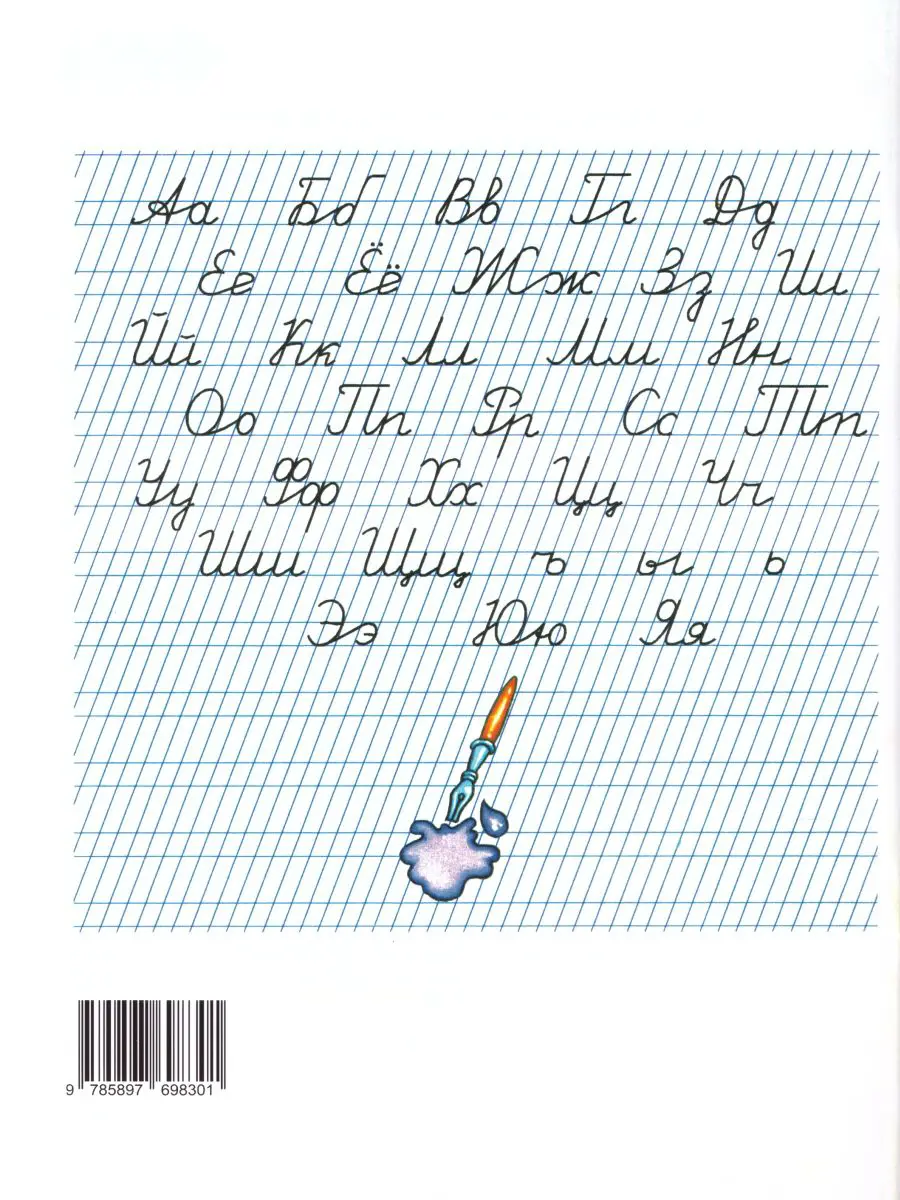 Аа Бб Вв Гг Дд
Ее Ёё Жж Зз Ии
Йй Кк Лл Мм Нн
Оо Пп Рр Сс Тт
Уу Фф Хх Цц Чч
Шш Щщ ъ ы ь
Ээ Юю Яя
9 785897 698301